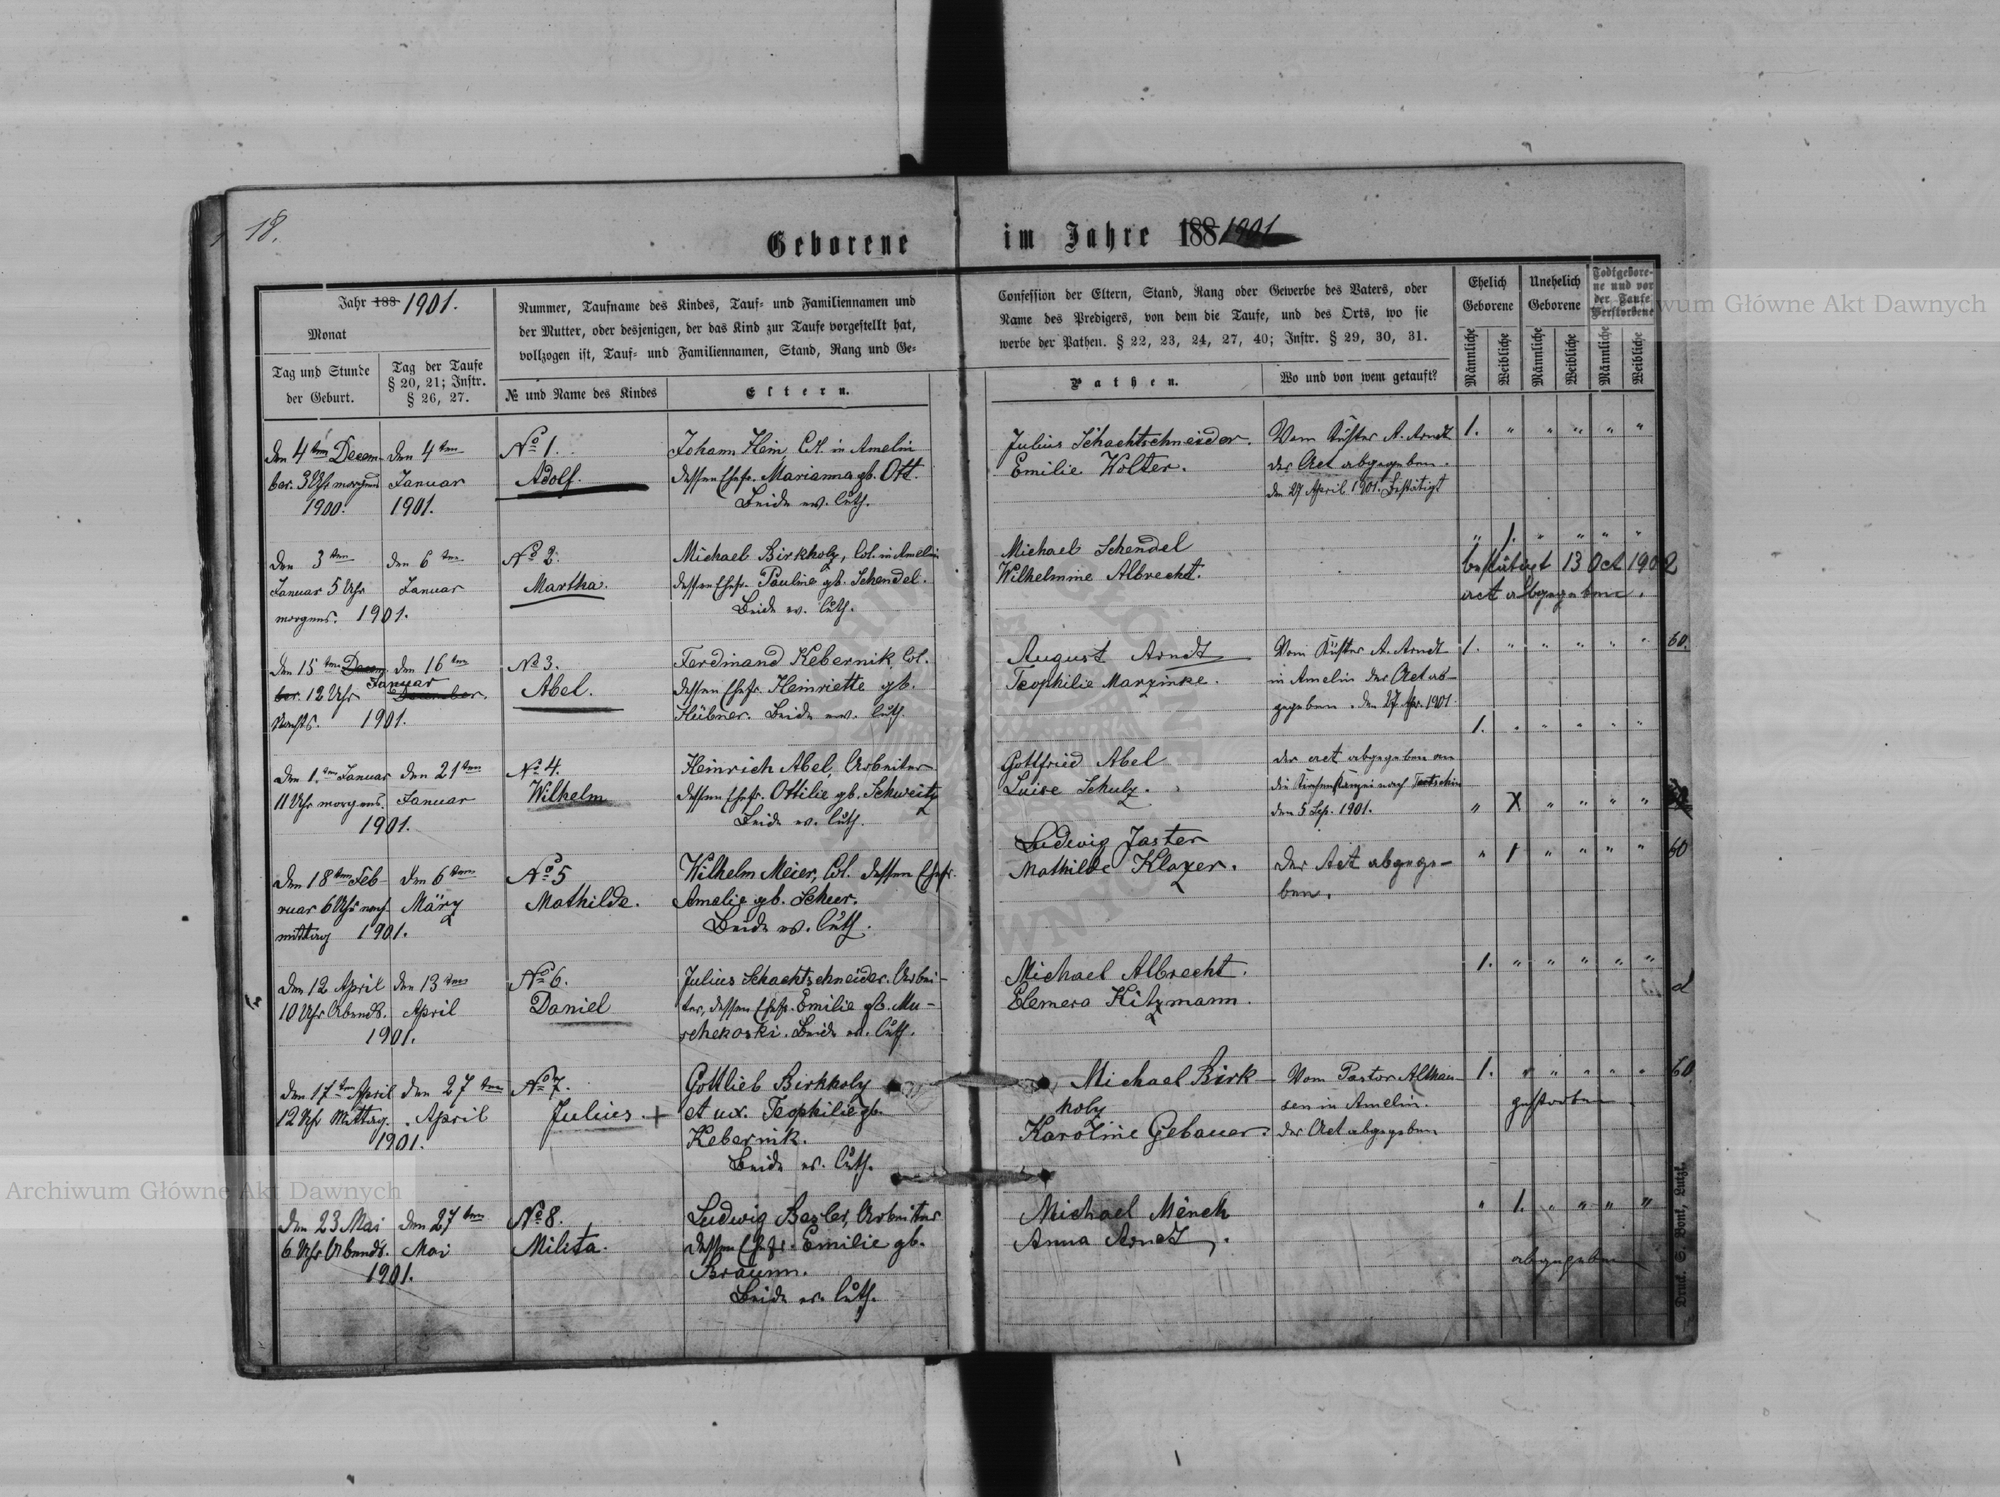 18.
Geborene im Jahre 188 1901
Jahr 188 1901.
Monat
Tag und Stunde
der Geburt.
Tag der Taufe
§ 20, 21; Instr.
§ 26, 27.
Nummer, Taufname des Kindes, Tauf- und Familiennamen und
der Mutter, oder desjenigen, der das Kind zur Taufe vorgestellt hat,
vollzogen ist, Tauf- und Familiennamen, Stand, Rang und Ge-
№ und Name des Kindes
Eltern.
Confession der Eltern, Stand, Rang oder Gewerbe des Vaters, oder
Name des Predigers, von dem die Taufe, und des Orts, wo sie
werbe der Pathen. § 22, 23, 24, 27, 40; Instr. § 29, 30, 31.
Pathen.
Wo und von wem getauft?
Ehelich
Geborene
Unehelich
Geborene
Todtgebore-
ne und vor
der Taufe
Verstorbene
Männliche
Weibliche
Männliche
Weibliche
Männliche
Weibliche
Den 4ten Decem-
ber. 3 Uhr morgens
1900.
Den 4ten
Januar
1901.
No 1.
Adolf.
Johann Hein, Col. in Amelin
dessen Ehefr. Marianna gb. Ott.
Beide ev. luth.
Julius Schachtschneider.
Emilie Wolter.
Vom Küster A. Arndt
der Act abgegeben.
den 27 April 1901. Bestätigt
1. " " " " "
Den 3ten
Januar 5 Uhr
morgens. 1901.
den 6ten
Januar
No 2.
Martha.
Michael Birkholz, Col. in Amelin
dessen Ehefr. Pauline gb. Schendel.
Beide ev. luth.
Michael Schendel
Wilhelmine Albrecht.
" 1. " " " "
bestätiget 13 Oct 1902
act abgegeben.
Den 15ten Decem-
ber. 12 Uhr
Nachts. 1901.
den 16ten
Januar
December.
No 3.
Abel.
Ferdinand Kebernik, Col.
dessen Ehefr. Heinriette gb.
Hübner. Beide ev. luth.
August Arndt
Teophilie Marzinke.
Vom Küster A. Arndt
in Amelin der Act ab-
gegeben. den 27. Apr. 1901
1. " " " " " 60.
Den 1.ten Januar
11 Uhr morgens.
1901.
den 21ten
Januar
No 4.
Wilhelm
Heinrich Abel, Arbeiter
dessen Ehefr. Ottilie gb. Schweitz
Beide ev. luth.
Gottfried Abel
Luise Schulz.
der act abgegeben an
die Kirchenkanzlei nach
den 5 Sep. 1901.
1. " " " " "
" X " " " "
Den 18ten Feb-
ruar 6 Uhr nach-
mittag 1901.
den 6ten
März
No 5
Mathilda.
Wilhelm Meier, Col. dessen Ehefr.
Amelie gb. Scheer.
Beide ev. luth.
Ludwig Jaster
Mathilde Klazer.
der Act abgege-
ben.
" 1 " " " " 60
Den 12 April
10 Uhr Abends.
1901.
den 13ten
April
No 6.
Daniel
Julius Schachtschneider. Arbei-
ter, dessen Ehefr. Emilie gb. Mu-
schekoski. Beide ev. luth.
Michael Albrecht.
Elemera Kitzmann.
1. " " " " "
d
Den 17ten April
12 Uhr Mittag.
1901.
den 27ten
April
No 7.
Julius. +
Gottlieb Birkholz
et ux. Teophilie gb.
Kebernik.
Beide ev. luth.
Michael Birk-
holz
Karoline Gebauer.
Vom Pastor Althau-
sen in Amelin.
der Act abgegeben
1. " " " " " 60
gestorben.
Den 23 Mai
6 Uhr Abends.
1901.
den 27ten
Mai
No 8.
Milita.
Ludwig Besler, Arbeiter
dessen Ehefr. Emilie gb.
Braunn.
Beide ev. luth.
Michael Mönch
Anna Arndt.
" 1. " " " "
abgegeben
Druk. S. Bonk, Lutzk.
Archiwum Główne Akt Dawnych
Archiwum Główne Akt Dawnych